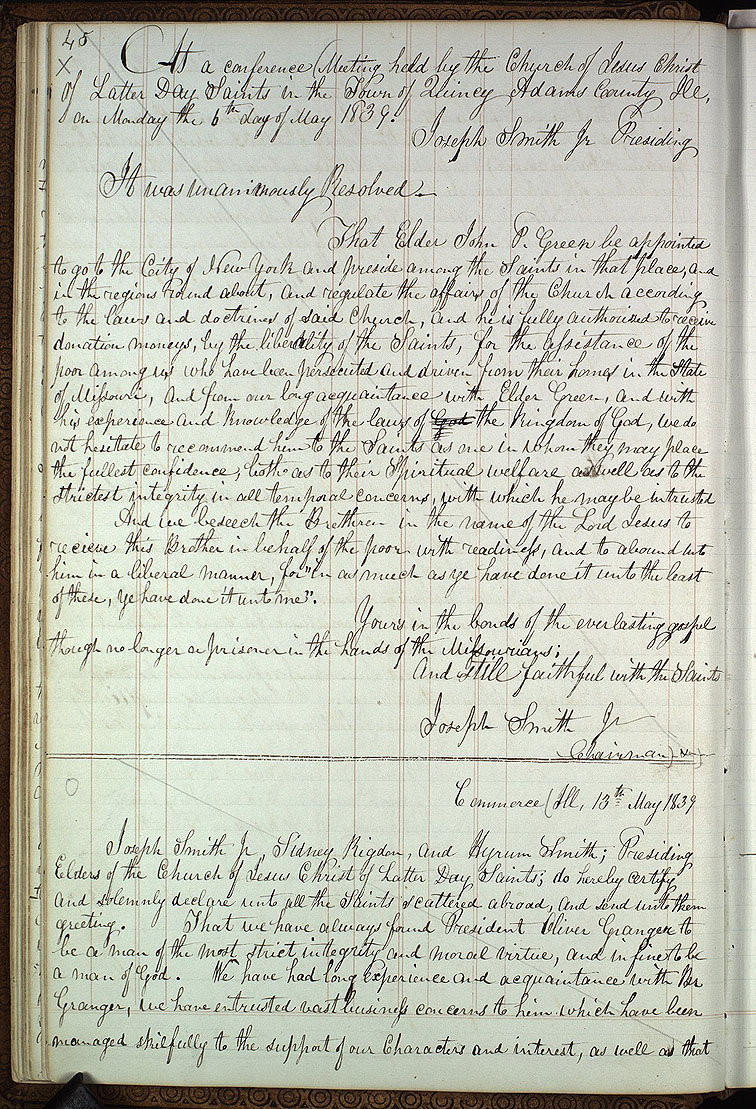 45
X
At a conference Meeting held by the Church of Jesus Christ
of Latter Day Saints in the Town of Quincy Adams County Ile,
on Monday the 6th day of May 1839.
Joseph Smith Jr Presiding
It was unanimously Resolved—
That Elder John P. Green be appointed
to go to the City of New York and preside among the Saints in that place, and
in the regions round about, and regulate the affairs of the Church according
to the laws and doctrines of said Church, and he is fully authorized to receive
donation moneys, by the liberality of the Saints, for the assistance of the
poor among us who have been persecuted and driven from their homes in the State
of Missouri, and from our long acquaintance with Elder Green, and with
his experience and knowledge of the laws of God the Kingdom of God, we do
not hesitate to recommend him to the Saints as one in whom they may place
the fullest confidence, both as to their Spiritual welfare as well as to the
strictest integrity in all temporal concerns, with which he may be intrusted
And we beseech the Brethren in the name of the Lord Jesus to
recieve this Brother in behalf of the poor with readiness, and to abound unto
him in a liberal manner, for "in as much as ye have done it unto the least
of these, ye have done it unto me".
Yours in the bonds of the everlasting gospel
though no longer a prisoner in the hands of the Missourians;
And still faithful with the Saints
Joseph Smith Jr
Chairman
Commerce Ill, 13th May 1839
Joseph Smith Jr, Sidney Rigdon, and Hyrum Smith; Presiding
Elders of the Church of Jesus Christ of Latter Day Saints; do hereby certify
and solemnly declare unto all the Saints scattered abroad, and send unto them
greeting. That we have always found President Oliver Granger to
be a man of the most strict integrity and moral virtue, and in fine to be
a man of God. We have had long experience and acquaintance with Br
Granger, we have entrusted vast business concerns to him which have been
managed skilfully to the support of our Characters and interest, as well as that